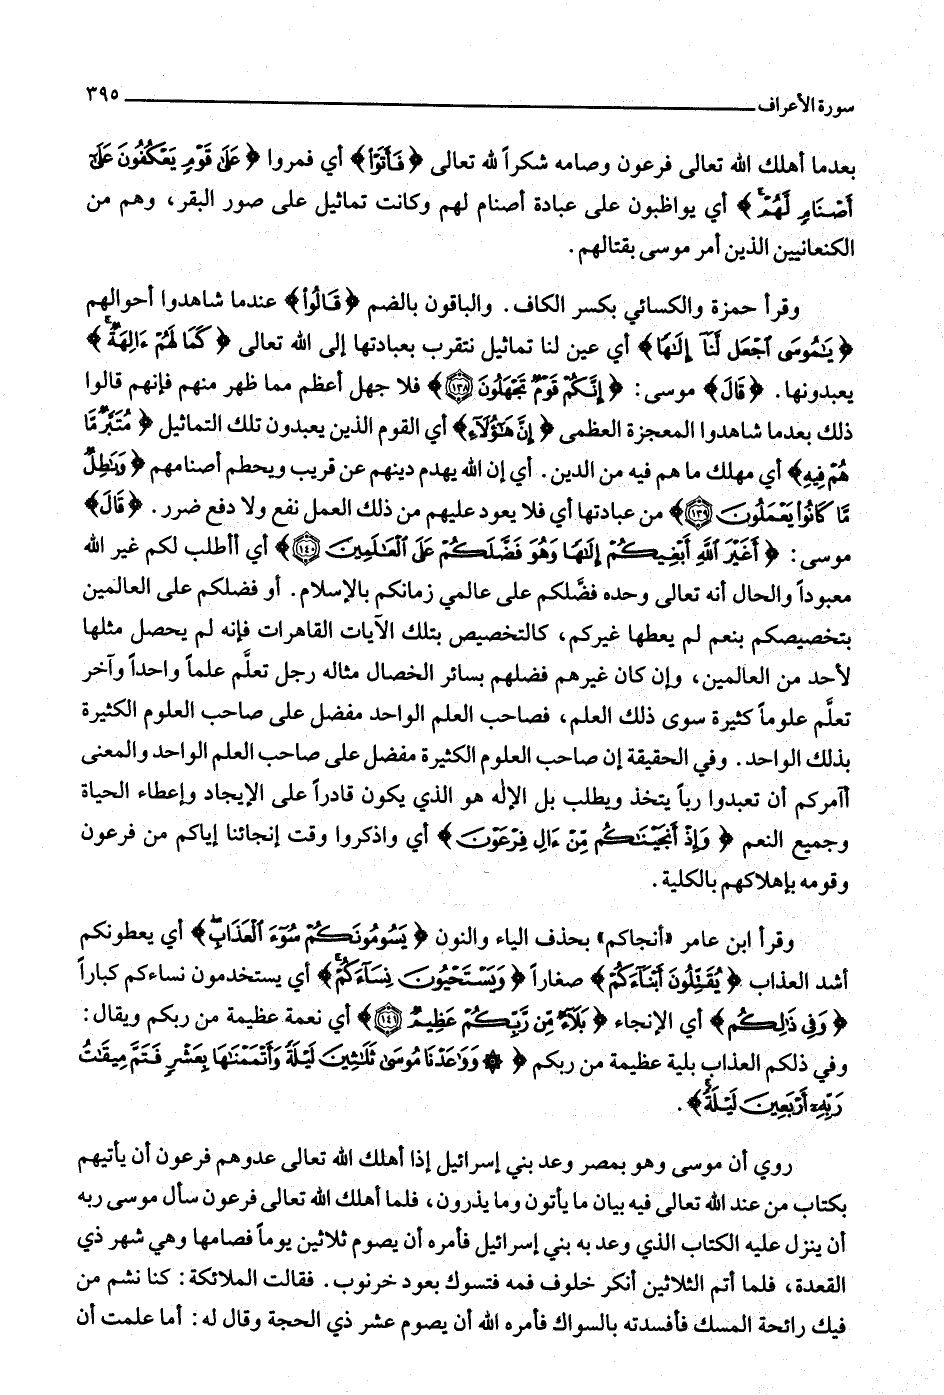 سورة الأعراف ٣٩٥
بعدما أهلك الله تعالى فرعون وصامه شكراً لله تعالى ﴿فَأَتَوْا﴾ أي فمروا ﴿عَلَىٰ قَوْمٍ يَعْكُفُونَ عَلَىٰٓ
أَصْنَامٍ لَّهُمْ﴾ أي يواظبون على عبادة أصنام لهم وكانت تماثيل على صور البقر، وهم من
الكنعانيين الذين أمر موسى بقتالهم.
وقرأ حمزة والكسائي بكسر الكاف. والباقون بالضم ﴿قَالُوا﴾ عندما شاهدوا أحوالهم
﴿يَٰمُوسَى ٱجْعَل لَّنَآ إِلَٰهًا﴾ أي عين لنا تماثيل نتقرب بعبادتها إلى الله تعالى ﴿كَمَا لَهُمْ ءَالِهَةٌ﴾
يعبدونها. ﴿قَالَ﴾ موسى: ﴿إِنَّكُمْ قَوْمٌ تَجْهَلُونَ ١٣٨﴾ فلا جهل أعظم مما ظهر منهم فإنهم قالوا
ذلك بعدما شاهدوا المعجزة العظمى ﴿إِنَّ هَٰٓؤُلَآءِ﴾ أي القوم الذين يعبدون تلك التماثيل ﴿مُتَبَّرٌ مَّا
هُمْ فِيهِ﴾ أي مهلك ما هم فيه من الدين. أي إن الله يهدم دينهم عن قريب ويحطم أصنامهم ﴿وَبَٰطِلٌ
مَّا كَانُوا يَعْمَلُونَ ١٣٩﴾ من عبادتها أي فلا يعود عليهم من ذلك العمل نفع ولا دفع ضرر. ﴿قَالَ﴾
موسى: ﴿أَغَيْرَ ٱللَّهِ أَبْغِيكُمْ إِلَٰهًا وَهُوَ فَضَّلَكُمْ عَلَى ٱلْعَٰلَمِينَ ١٤٠﴾ أي أأطلب لكم غير الله
معبوداً والحال أنه تعالى وحده فضَّلكم على عالمي زمانكم بالإسلام. أو فضلكم على العالمين
بتخصيصكم بنعم لم يعطها غيركم، كالتخصيص بتلك الآيات القاهرات فإنه لم يحصل مثلها
لأحد من العالمين، وإن كان غيرهم فضلهم بسائر الخصال مثاله رجل تعلَّم علماً واحداً وآخر
تعلَّم علوماً كثيرة سوى ذلك العلم، فصاحب العلم الواحد مفضل على صاحب العلوم الكثيرة
بذلك الواحد. وفي الحقيقة إن صاحب العلوم الكثيرة مفضل على صاحب العلم الواحد والمعنى
أآمركم أن تعبدوا رباً يتخذ ويطلب بل الإلٰه هو الذي يكون قادراً على الإيجاد وإعطاء الحياة
وجميع النعم ﴿وَإِذْ أَنجَيْنَٰكُم مِّنْ ءَالِ فِرْعَوْنَ﴾ أي واذكروا وقت إنجائنا إياكم من فرعون
وقومه بإهلاكهم بالكلية.
وقرأ ابن عامر «أنجاكم» بحذف الياء والنون ﴿يَسُومُونَكُمْ سُوٓءَ ٱلْعَذَابِ﴾ أي يعطونكم
أشد العذاب ﴿يُقَتِّلُونَ أَبْنَآءَكُمْ﴾ صغاراً ﴿وَيَسْتَحْيُونَ نِسَآءَكُمْ﴾ أي يستخدمون نساءكم كباراً
﴿وَفِى ذَٰلِكُم﴾ أي الإنجاء ﴿بَلَآءٌ مِّن رَّبِّكُمْ عَظِيمٌ ١٤١﴾ أي نعمة عظيمة من ربكم ويقال:
وفي ذلكم العذاب بلية عظيمة من ربكم ﴿۞ وَوَٰعَدْنَا مُوسَىٰ ثَلَٰثِينَ لَيْلَةً وَأَتْمَمْنَٰهَا بِعَشْرٍ فَتَمَّ مِيقَٰتُ
رَبِّهِۦٓ أَرْبَعِينَ لَيْلَةً﴾.
روي أن موسى وهو بمصر وعد بني إسرائيل إذا أهلك الله تعالى عدوهم فرعون أن يأتيهم
بكتاب من عند الله تعالى فيه بيان ما يأتون وما يذرون، فلما أهلك الله تعالى فرعون سأل موسى ربه
أن ينزل عليه الكتاب الذي وعد به بني إسرائيل فأمره أن يصوم ثلاثين يوماً فصامها وهي شهر ذي
القعدة، فلما أتم الثلاثين أنكر خلوف فمه فتسوك بعود خرنوب. فقالت الملائكة: كنا نشم من
فيك رائحة المسك فأفسدته بالسواك فأمره الله أن يصوم عشر ذي الحجة وقال له: أما علمت أن